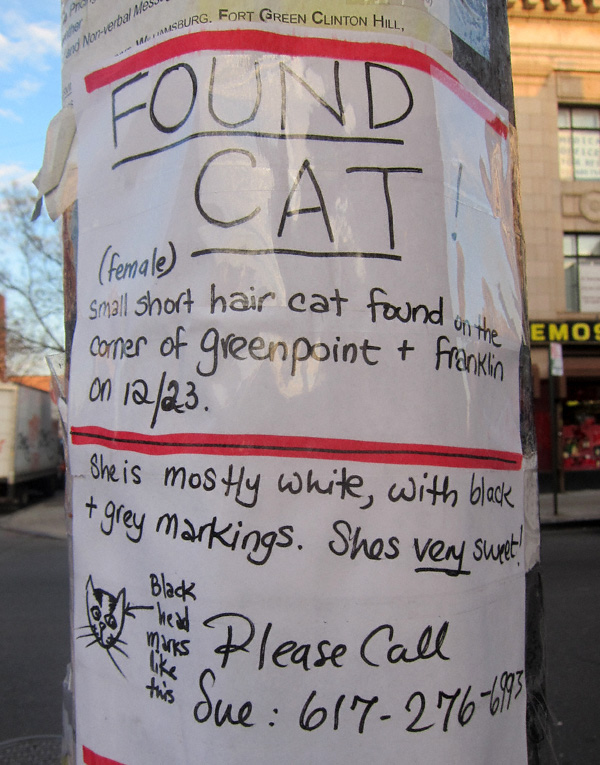 and Non-verbal
WILLIAMSBURG, FORT GREEN CLINTON HILL,
FOUND
CAT!
(female)
small short hair cat found on the
corner of greenpoint + franklin
on 12/23.
She is mostly white, with black
+ grey markings. Shes very sweet!
Black
head
marks
like
this
Please Call
Sue: 617-276-6993
EMOS